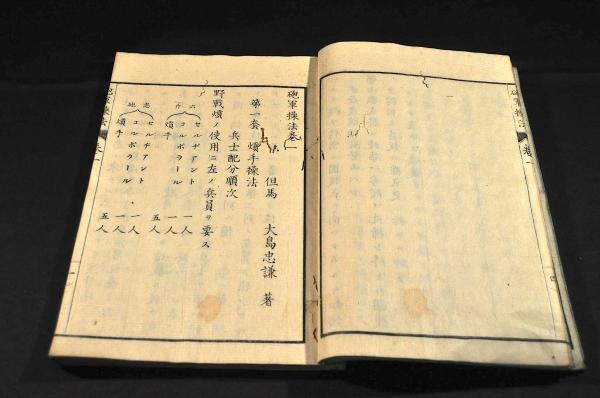 砲軍操法 卷一
砲軍操法卷一
但馬 大島忠謙 著
第一套 熕手操法
兵士配分順次
野戰熕ノ使用ニ左ノ兵員ヲ要ス
六斤 セルヂアント 一人
コルポラール 一人
熕手 五人
忽砲 セルヂアント 一人
コルポラール 一人
熕手 五人
砲軍操法 卷一